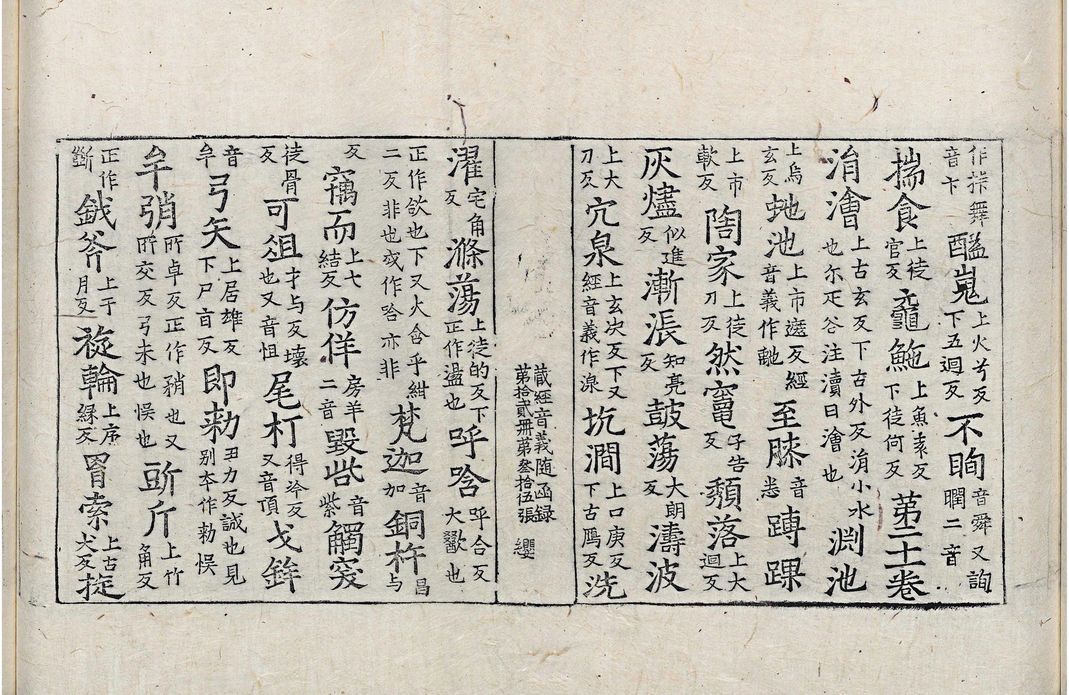 作拤舞音卞 醯嵬上火兮反下五迴反 不眴音舜又詢瞤二音
揣食上徒官反 黿鮠上魚袁反下徒何反 第二十卷
涓澮上古玄反下古外反涓小水也尒疋谷注瀆曰澮也 渊池
上烏玄反 虵池上市遮反經音義作馳 至膝音悉 蹲踝
上市軟反 陶家上徒刀反 然竃子告反 頹落上大迴反
灰燼似進反 漸漲知亮反 鼓蕩大朗反 濤波
上大刀反 宂泉上玄决反下又經音義作湶 坑澗上口庚反下古鴈反 洗
藏經音義随函録第拾貳冊第叁拾伍張 纓
濯宅角反 滌蕩上徒的反下正作盪也 呼哈呼合反大歠也
正作欱也下又火含乎紺二反非也或作唅亦非 梵迦音加 銅杵昌与
反 竊而上七結反 仿佯房羊二音 毀呰音紫 觸突
徒骨反 可俎才与反壞也又音怚 尾朾得冷反又音頂 戈鉾
音牟 弓矢上居雄反下尸旨反 即勑丑力反誠也見別夲作勅悮
牟矟所卓反正作矟也又所交反弓末也悮也 斵斤上竹角反
正作斵 鉞斧上于月反 旋輪上序緣反 罥索上古犬反 掟